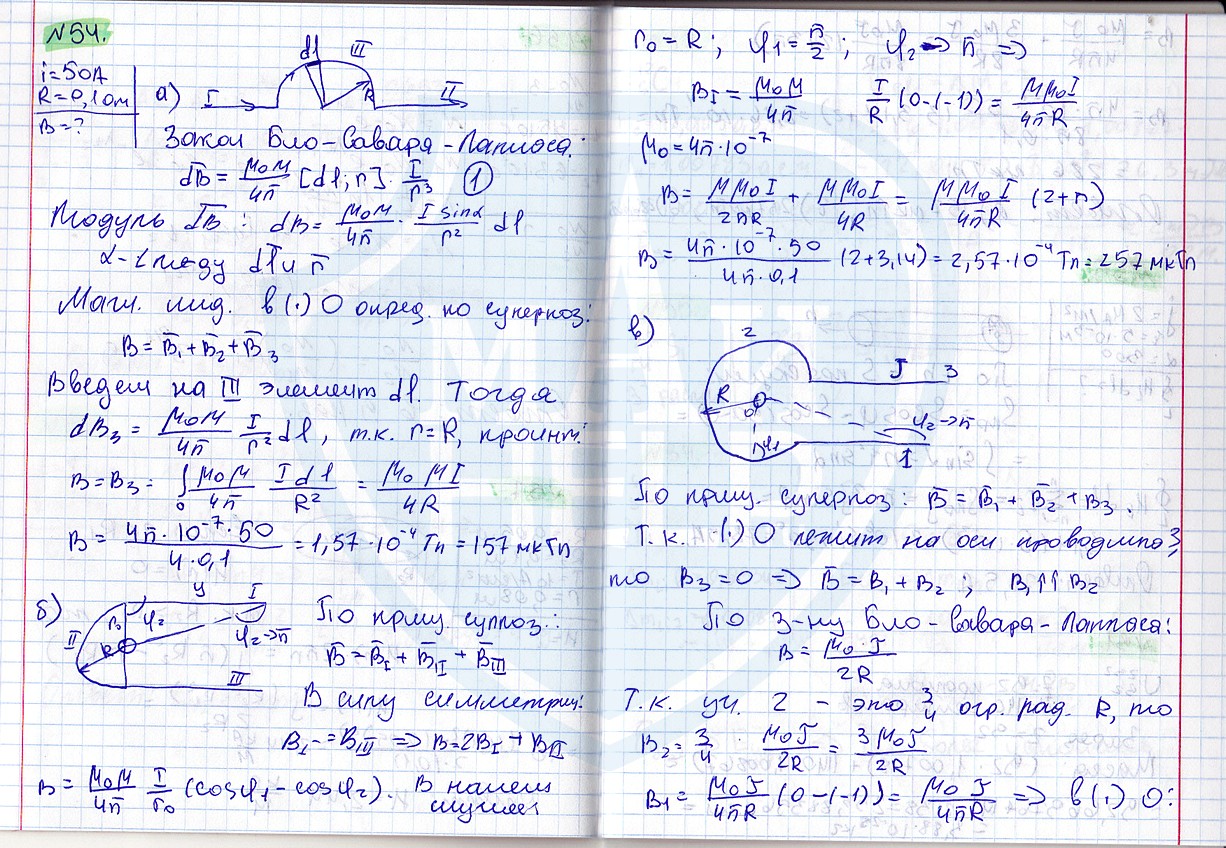 №54.
i=50А
R=0,10м
B=?
а) I dl III R II
Закон Био-Савара-Лапласа:
dB̅ = μ₀μ/4π [dl; r] · I/r³ ①
Модуль dB̅ : dB = μ₀μ/4π · I sinα/r² dl
α - ∠ между dl и r̅
Магн. инд. в (·) О опред. по суперпоз:
B = B̅₁ + B̅₂ + B̅₃
Введем на III элемент dl. Тогда
dB₃ = μ₀μ/4π I/r² dl, т.к. r=R, проинт:
B = B₃ = ∫₀ μ₀μ/4π I dl/R² = μ₀μI/4R
B = 4π·10⁻⁷·50/4·0,1 = 1,57·10⁻⁴ Тл = 157 мкТл
б) y I
r₀ φ₂ φ₂→π̅
II R
III
По прнц. суппоз.:
B̅ = B̅_I + B̅_II + B̅_III
В силу симметрии:
B_I = B_III => B=2B_I + B_II
B = μ₀μ/4π I/r₀ (cosφ₁ - cosφ₂). В нашем случае
r₀ = R; φ₁ = π/2; φ₂ → π =>
B_I = μ₀μ/4π I/R (0-(-1)) = μμ₀I/4πR
μ₀=4π·10⁻⁷
B = μμ₀I/2πR + μμ₀I/4R = μμ₀I/4πR (2+π)
B = 4π·10⁻⁷·50/4π·0,1 (2+3,14) = 2,57·10⁻⁴ Тл = 257 мкТл
в)
2
J 3
R
0
φ₂→π
φ₁
I
По прнц. суперпоз: B̅ = B̅₁ + B̅₂ + B₃.
Т.к. (·) О лежит на оси проводника 3,
то B₃=0 => B̅ = B₁ + B₂ ; B₁↑↑B₂
По з-ну Био-Савара-Лапласа:
B = μ₀·J/2R
Т.к. уч. 2 - это 3/4 окр. рад. R, то
B₂ = 3/4 · μ₀J/2R = 3μ₀J/2R
B₁ = μ₀J/4πR (0-(-1)) = μ₀J/4πR => в (·) О: